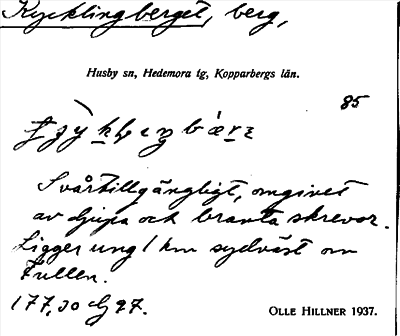 Kycklingberget, berg,
Husby sn, Hedemora tg, Kopparbergs län.
85
Svårtillgängligt, omgivet
av djupa och branta skrevor.
Ligger ung 1 km sydväst om
Fullen.
177,30
OLLE HILLNER 1937.